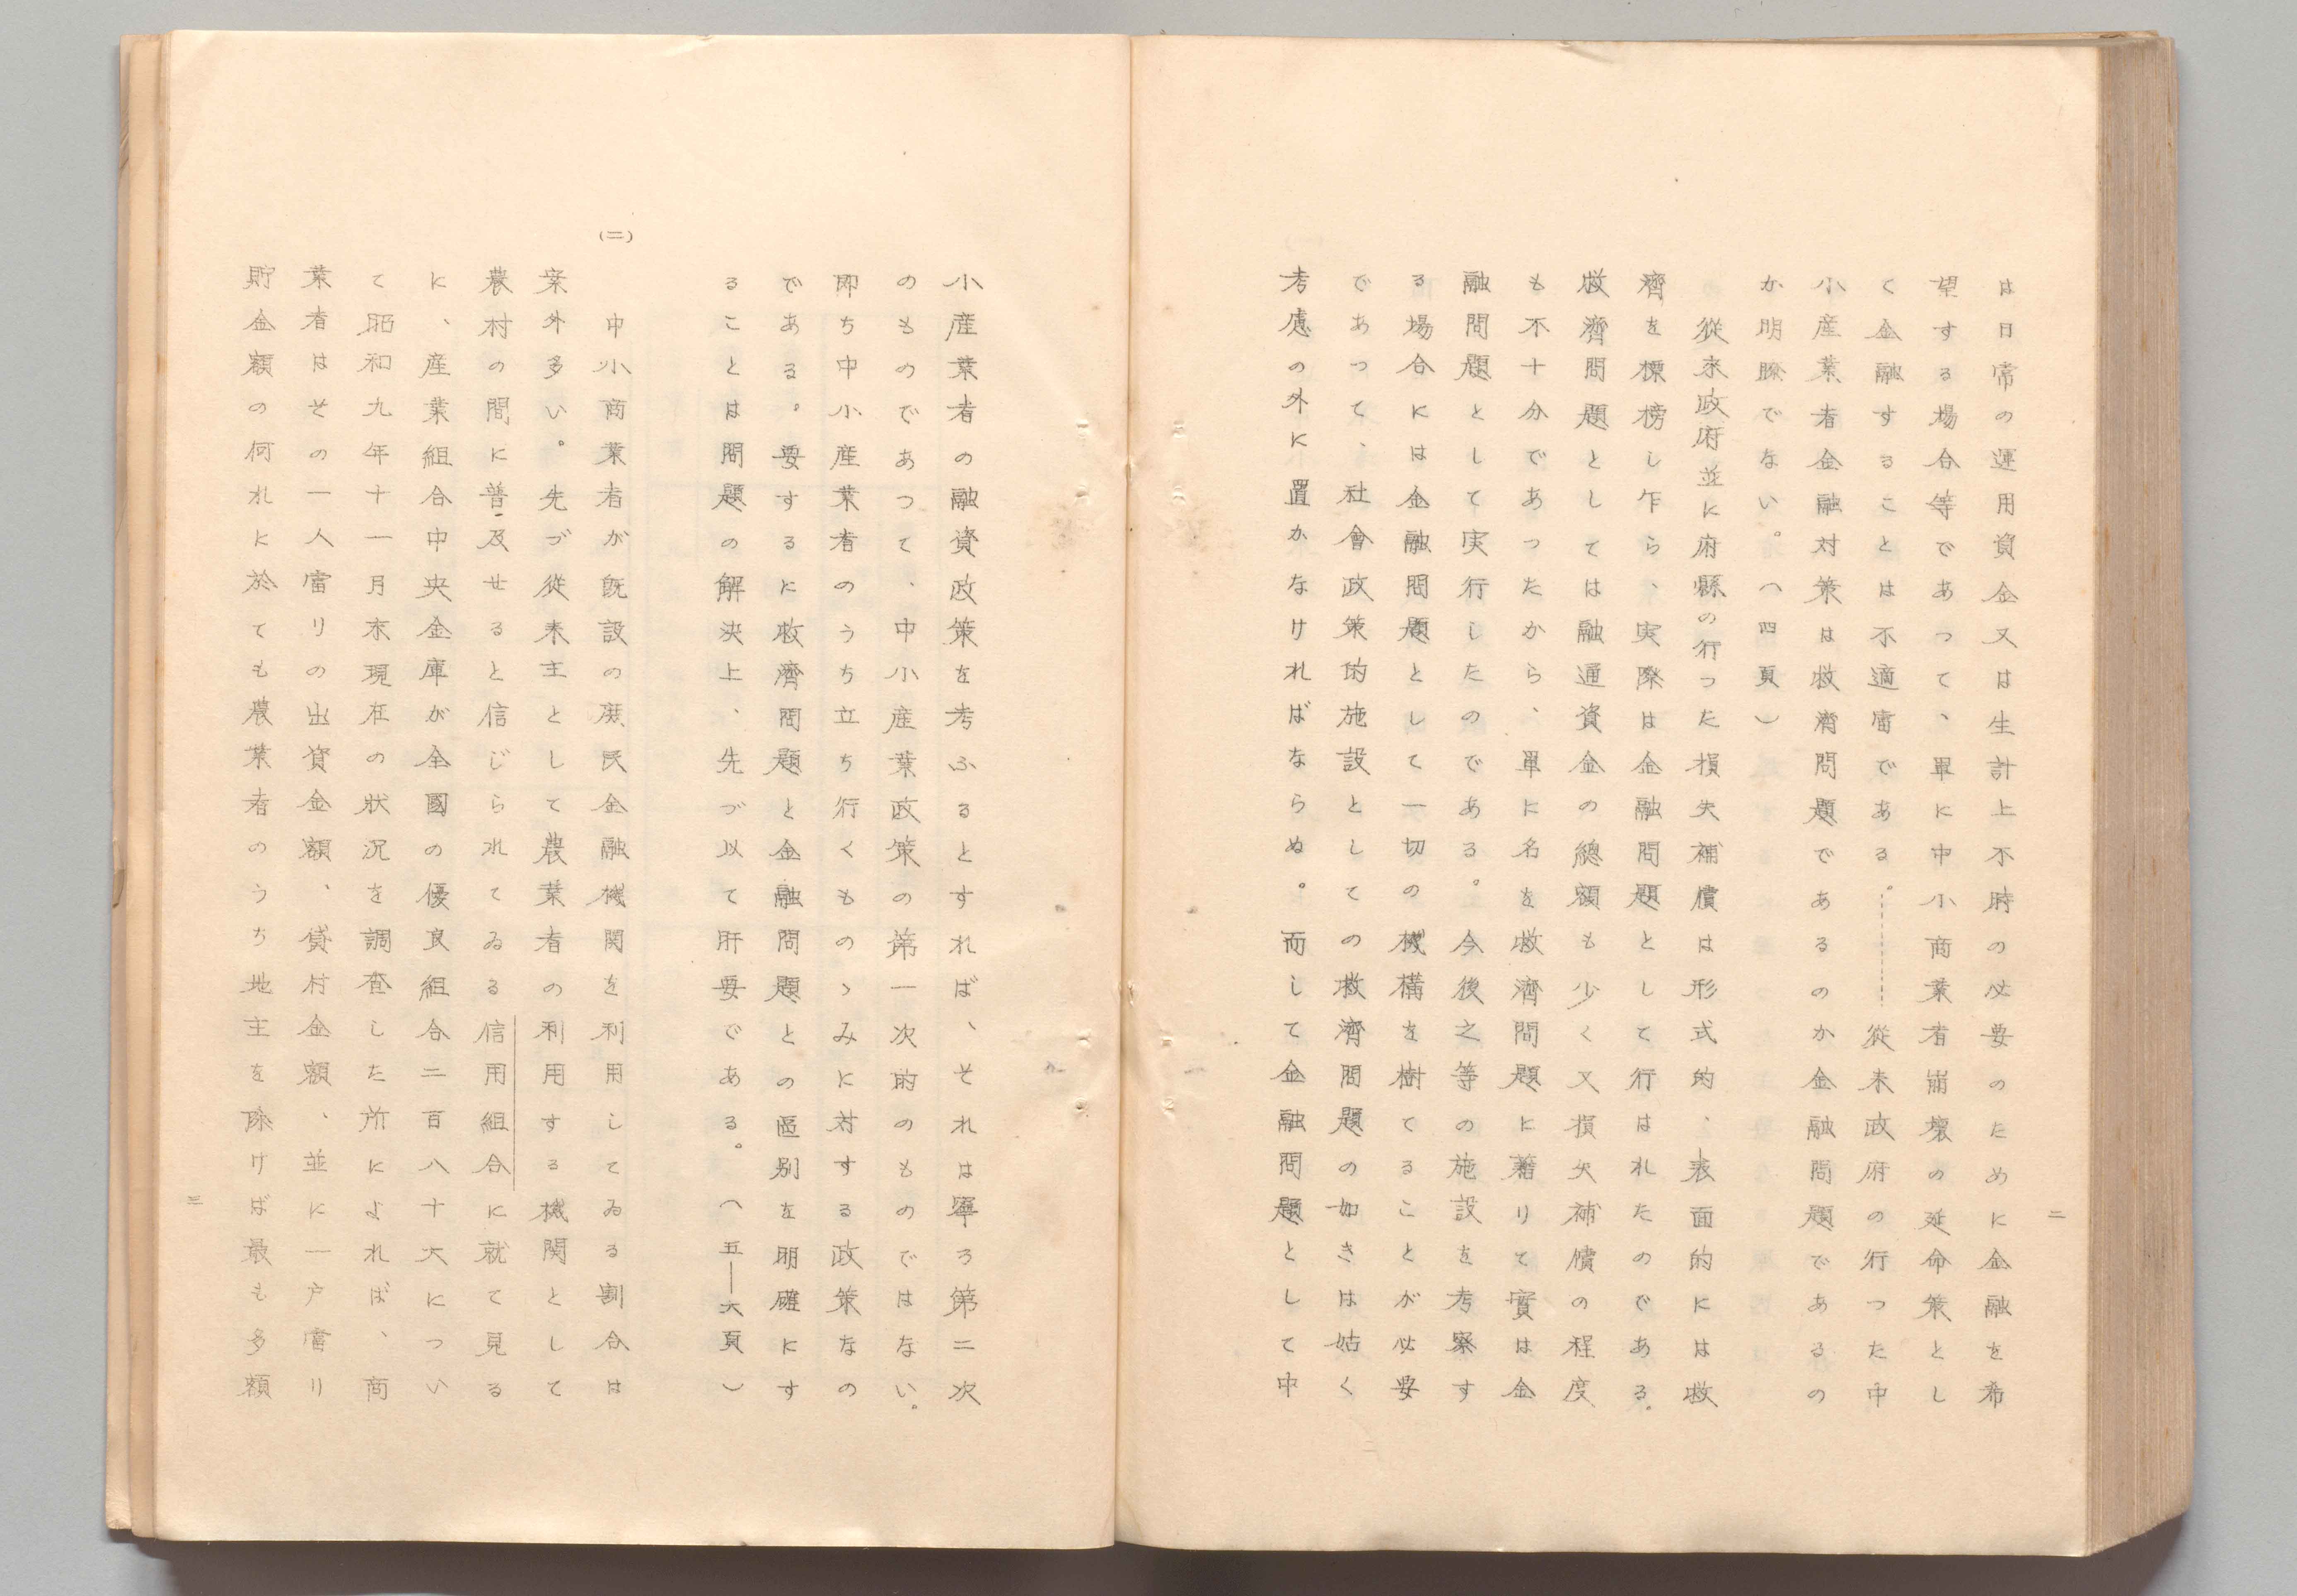 二
は日常の運用資金又は生計上不時の必要のために金融を希
望する場合等であつて、単に中小商業者崩壊の延命策とし
く金融することは不適當である。------従来政府の行つた中
小産業者金融対策は救濟問題であるのか金融問題であるの
か明瞭でない。（四頁）
従来政府並に府縣の行つた損失補償は形式的、表面的には救
濟を標榜し乍ら、実際は金融問題として行はれたのである。
救濟問題としては融通資金の總額も少く又損失補償の程度
も不十分であつたから、単に名を救濟問題に藉りて實は金
融問題として実行したのである。今後之等の施設を考察す
る場合には金融問題として一切の機構を樹てることが必要
であつて、社會政策的施設としての救濟問題の如きは姑く
考慮の外に置かなければならぬ。而して金融問題として中
小産業者の融資政策を考ふるとすれば、それは寧ろ第二次
のものであつて、中小産業政策の第一次的のものではない。
即ち中小産業者のうち立ち行くものゝみに対する政策なの
である。要するに救濟問題と金融問題との區別を明確にす
ることは問題の解決上、先づ以て肝要である。（五—六頁）
(二)
中小商業者が既設の庶民金融機関を利用してゐる割合は
案外多い。先づ従来主として農業者の利用する機関として
農村の間に普及せると信じられてゐる信用組合に就て見る
に、産業組合中央金庫が全國の優良組合二百八十六につい
て昭和九年十一月末現在の狀況を調査した所によれば、商
業者はその一人當りの出資金額、貸付金額、並に一戸當り
貯金額の何れに於ても農業者のうち地主を除けば最も多額
三